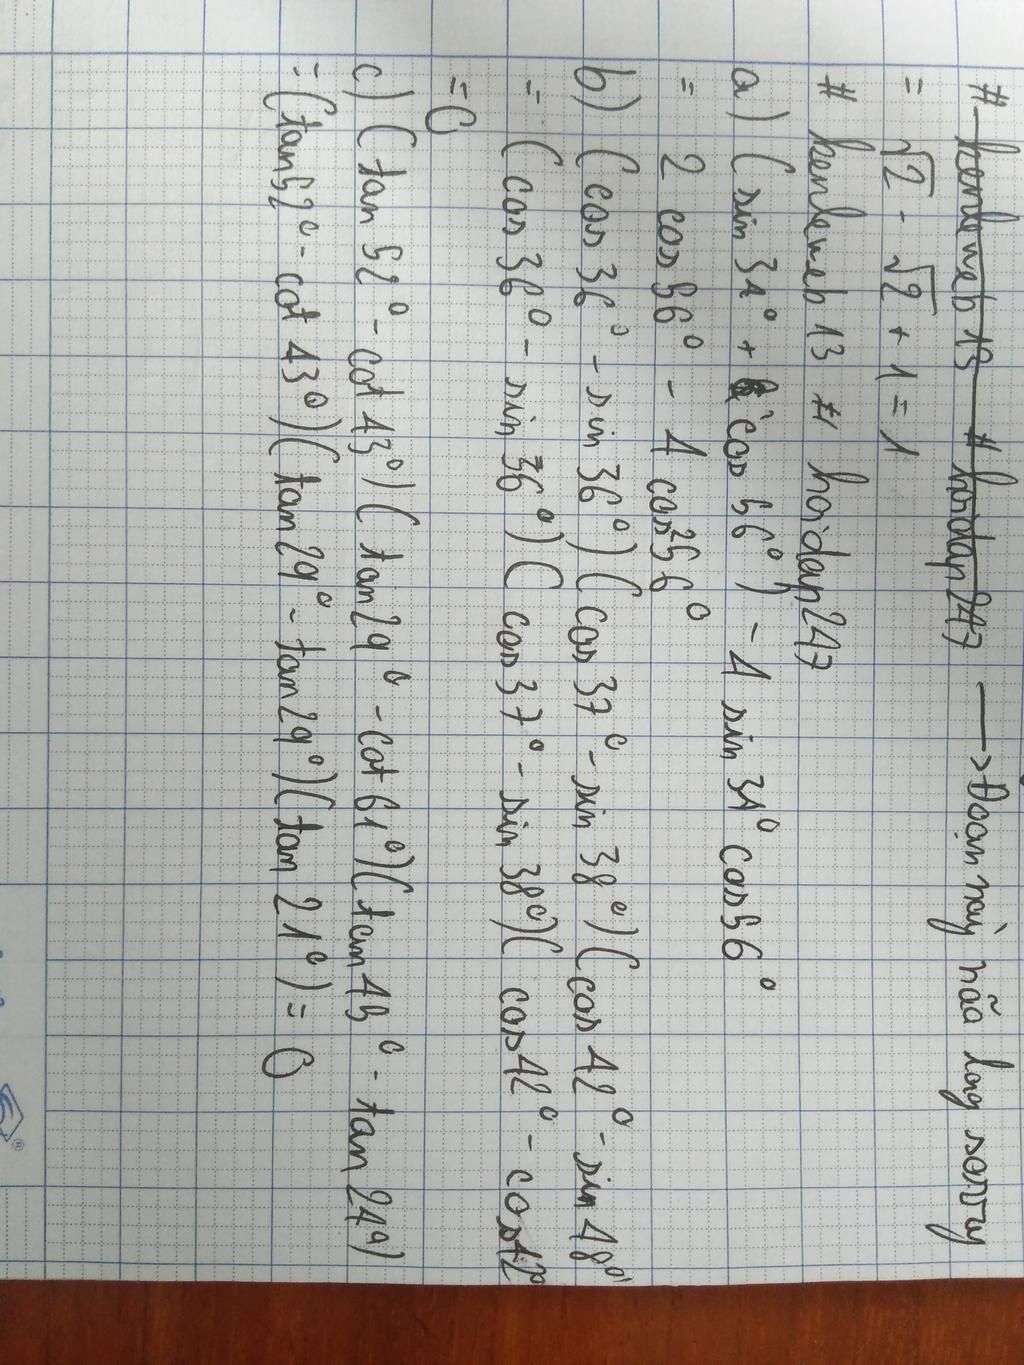 # kenlemeb 13 # hoidap247 → Đoạn này não lag sorry
= √2 - √2 + 1 = 1
# kenlemeb 13 # hoidap247
a) (sin 34° + cos 56°) - 4 sin 34° cos 56°
= 2 cos 56° - 4 cos² 56°
b) (cos 36° - sin 36°)(cos 37° - sin 38°)(cos 42° - sin 48°)
= (cos 36° - sin 36°)(cos 37° - sin 38°)(cos 42° - cos 42°
= 0
c) (tan 52° - cot 43°)(tan 29° - cot 61°)(tan 45° - tan 24°)
= (tan 52° - cot 43°)(tan 29° - tan 29°)(tan 21°) = 0